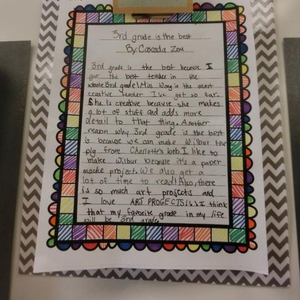 3rd grade is the best
By: Cascada Zoe
3rd grade is the best because I
got the best teacher in the
whole 3rd grade! Miss Way is the most
creative teacher I've got so far.
She is creative because she makes
a lot of stuff and adds more
detail to that thing. Another
reason why 3rd grade is the best
is because we can make Wilbur the
pig from Charlotte's web. I like to
make Wilbur because it's a paper
mache project. We also get a
lot of time to read! Also, there
is so much art projects and
I love ART PROJECTS! I think
that my favorite grade in my life
will be 3rd grade